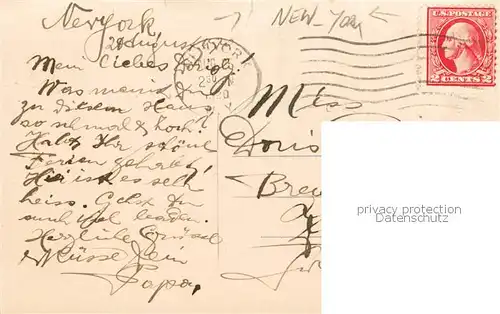 New York
NEW-YORK
28 August
Mein liebes
Was meinst Du
zu diesem Haus
so schmal & hoch?
Habt Ihr schöne
Ferien gehabt?
Hier ist es sehr
heiss. Gehst Du
auch viel baden.
Herzliche Grüsse
& Küsse Dein
Papa,
Miss
Doris
U.S. POSTAGE
2 CENTS 2
privacy protection
Datenschutz